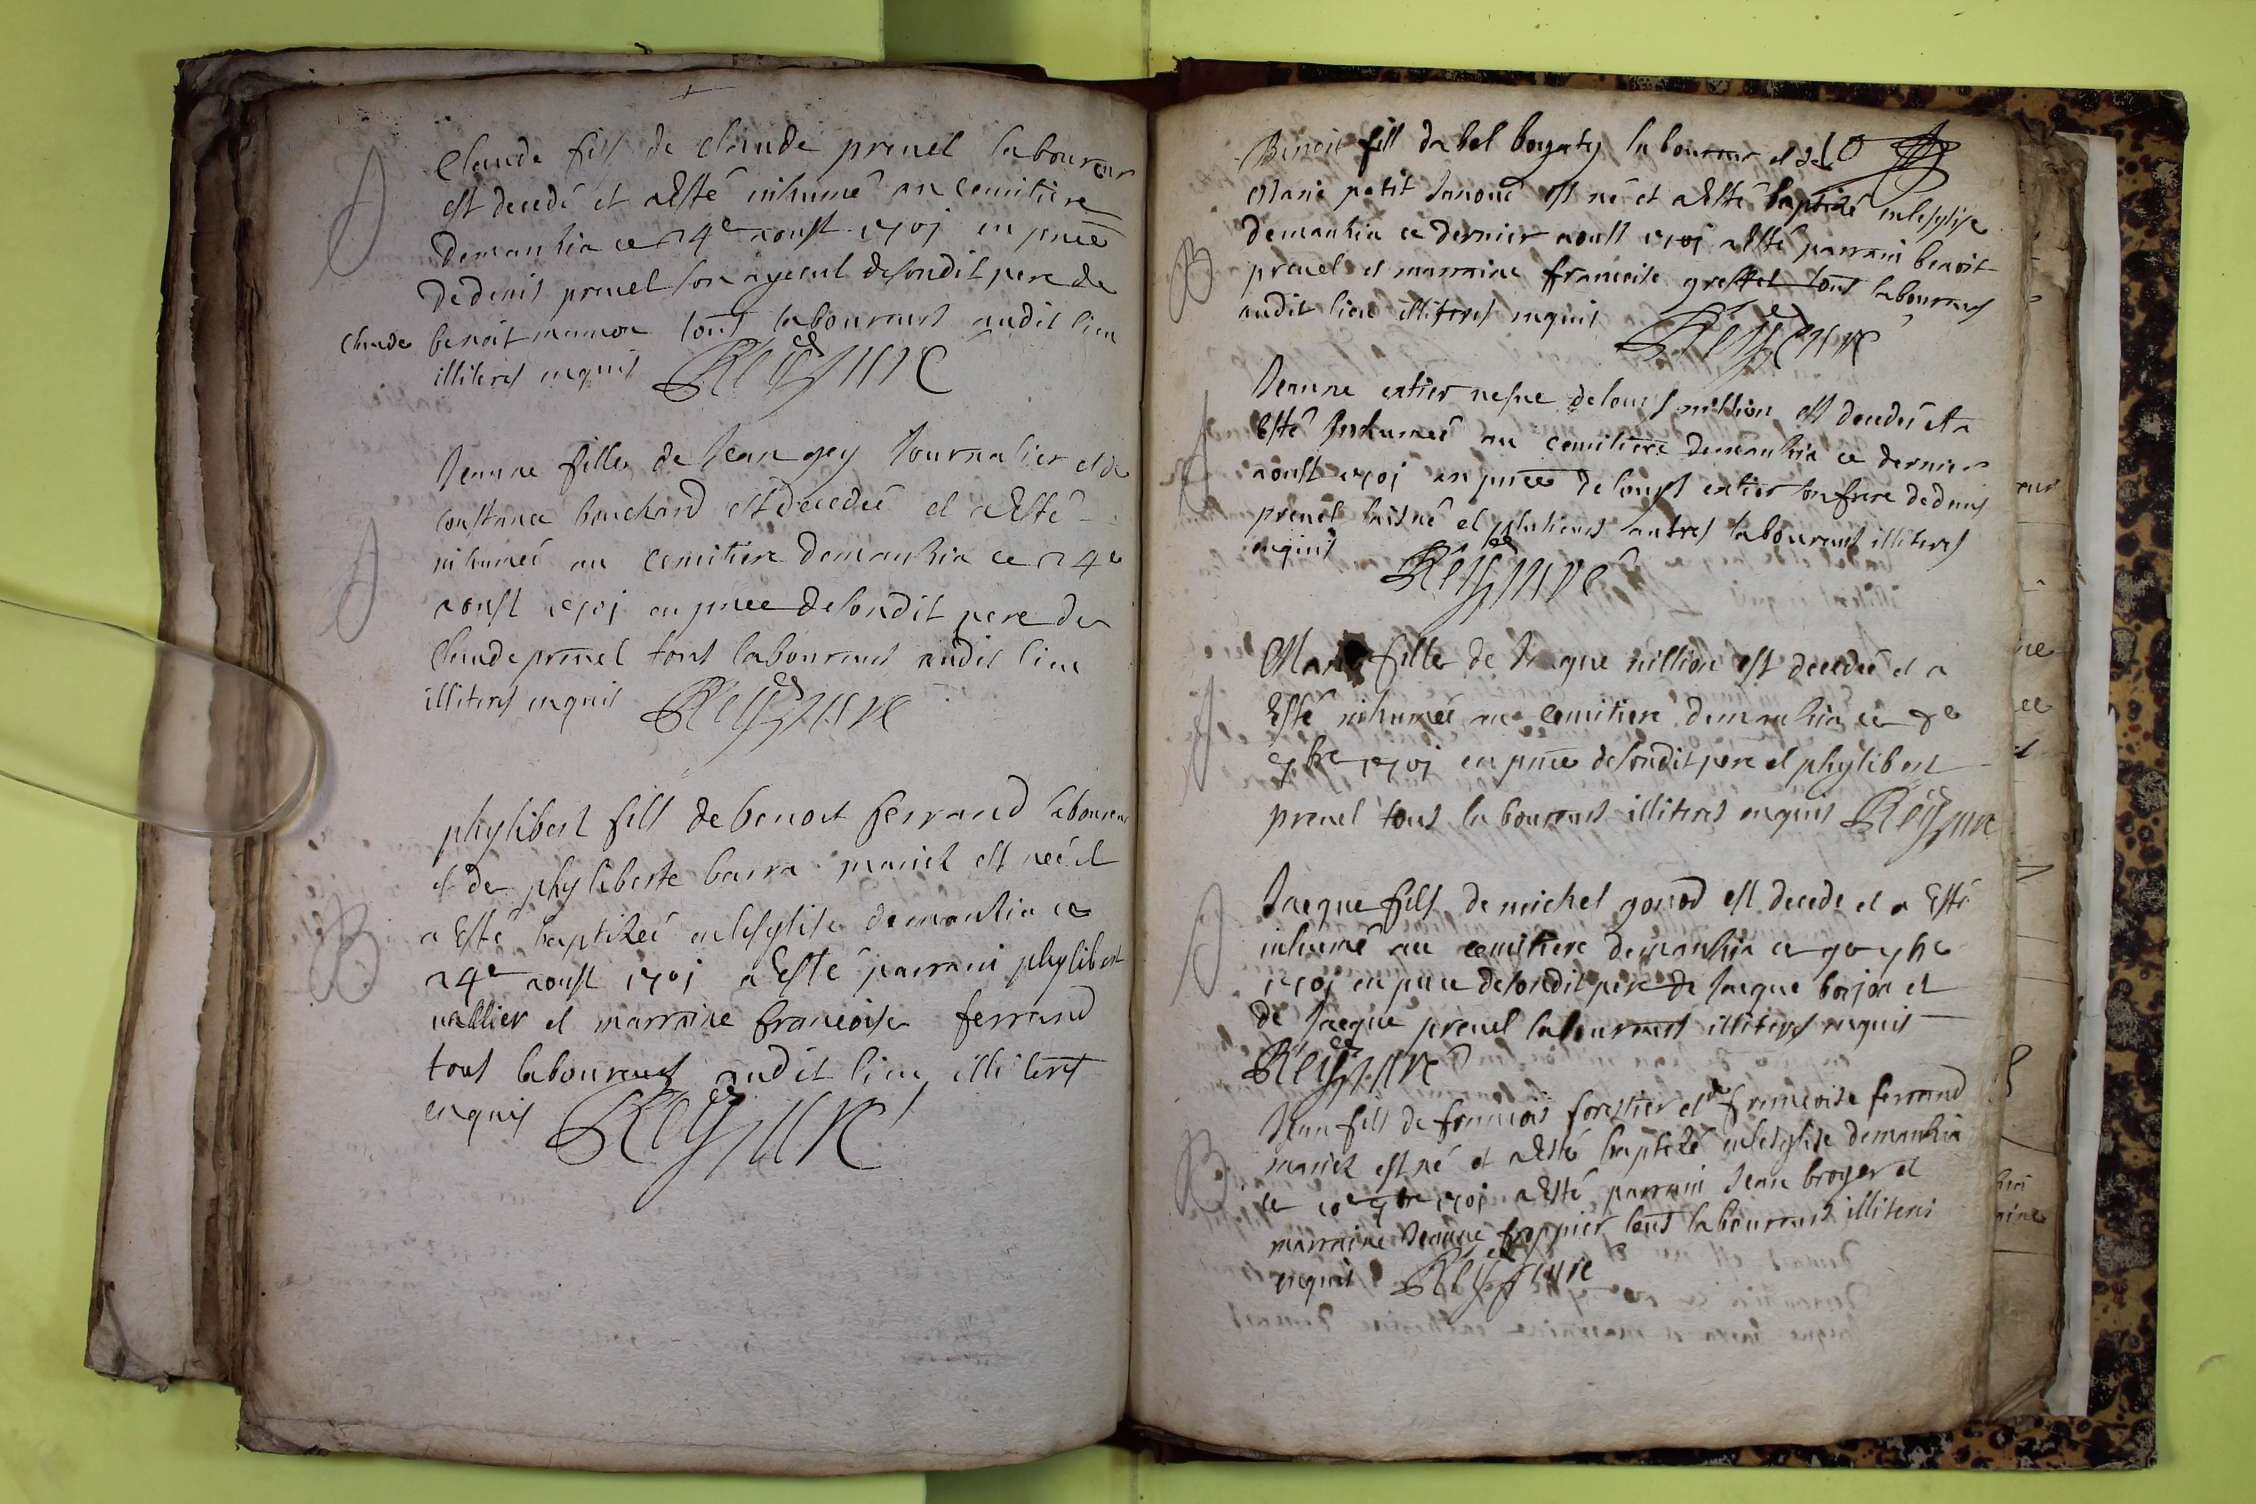 Claude fils de claude prevel laboureur
est decedé et a Esté inhumé au cemitiere
demanzia ce 24e aoust 1701 en pnce
de denis prevel son ayeeul desondit pere de
claude benoit tous laboureurs audit lieu
illiteres enquis Reÿ curé
Jeanne fille de Jean gey Journalier et de
constance bouchard est decedeé et a Esté
inhumeé au cemitiere demanzia ce 24e
aoust 1701 en pnce desondit pere de
Claude prevel tous laboureurs audit lieu
illiteres enquis Reÿ curé
phylibert fils de benoit ferrand laboureur
et de phyliberte barra mariez est neé et
a Esté baptizeé en lesglise demanzia ce
24e aoust 1701 a Esté parrain phylibert
vallier et marraine francoise ferrand
tous laboureurs audit lieu illiteres
enquis Reÿ curé
10
Benoit fils dabel laboureur et de
Marie petit Janoue est né et a Esté baptizé en lesglise
demanzia ce dernier aoust 1701 a Esté parrain benoit
prevel et marraine francoise greffet tous laboureurs
audit lieu illiteres enquis Reÿ curé
Jeanne extier vefve de louys million est decedeé et a
Esté Inhumeé au cemitiere demanzia ce dernier
aoust 1701 en pnce de louys extier son frere de denis
prevel laisné et plusieurs autres laboureurs illiteres
enquis Reÿ curé
Marie fille de Jaque million est decedeé et a
Esté inhumeé au cemitiere demanzia ce
7bre 1701 en pnce desondit pere et phylibert
prevel tous laboureurs illiteres enquis Reÿ curé
Jacque fils de michel gonod est decede et a Esté
inhumé au cemitiere demanzia ce 9e 7bre
1701 en pnce desondit pere de Jacque borjon et
de Jacque prevel laboureurs illiteres enquis
Reÿ curé
Jean fils de francois forestier et de francoise ferrand
mariez est né et a Esté baptizé en lesglise demanzia
ce 10e 7bre 1701 a Esté parrain Jean broyer et
marraine Jeanne frappier tous laboureurs illiteres
enquis Reÿ curé